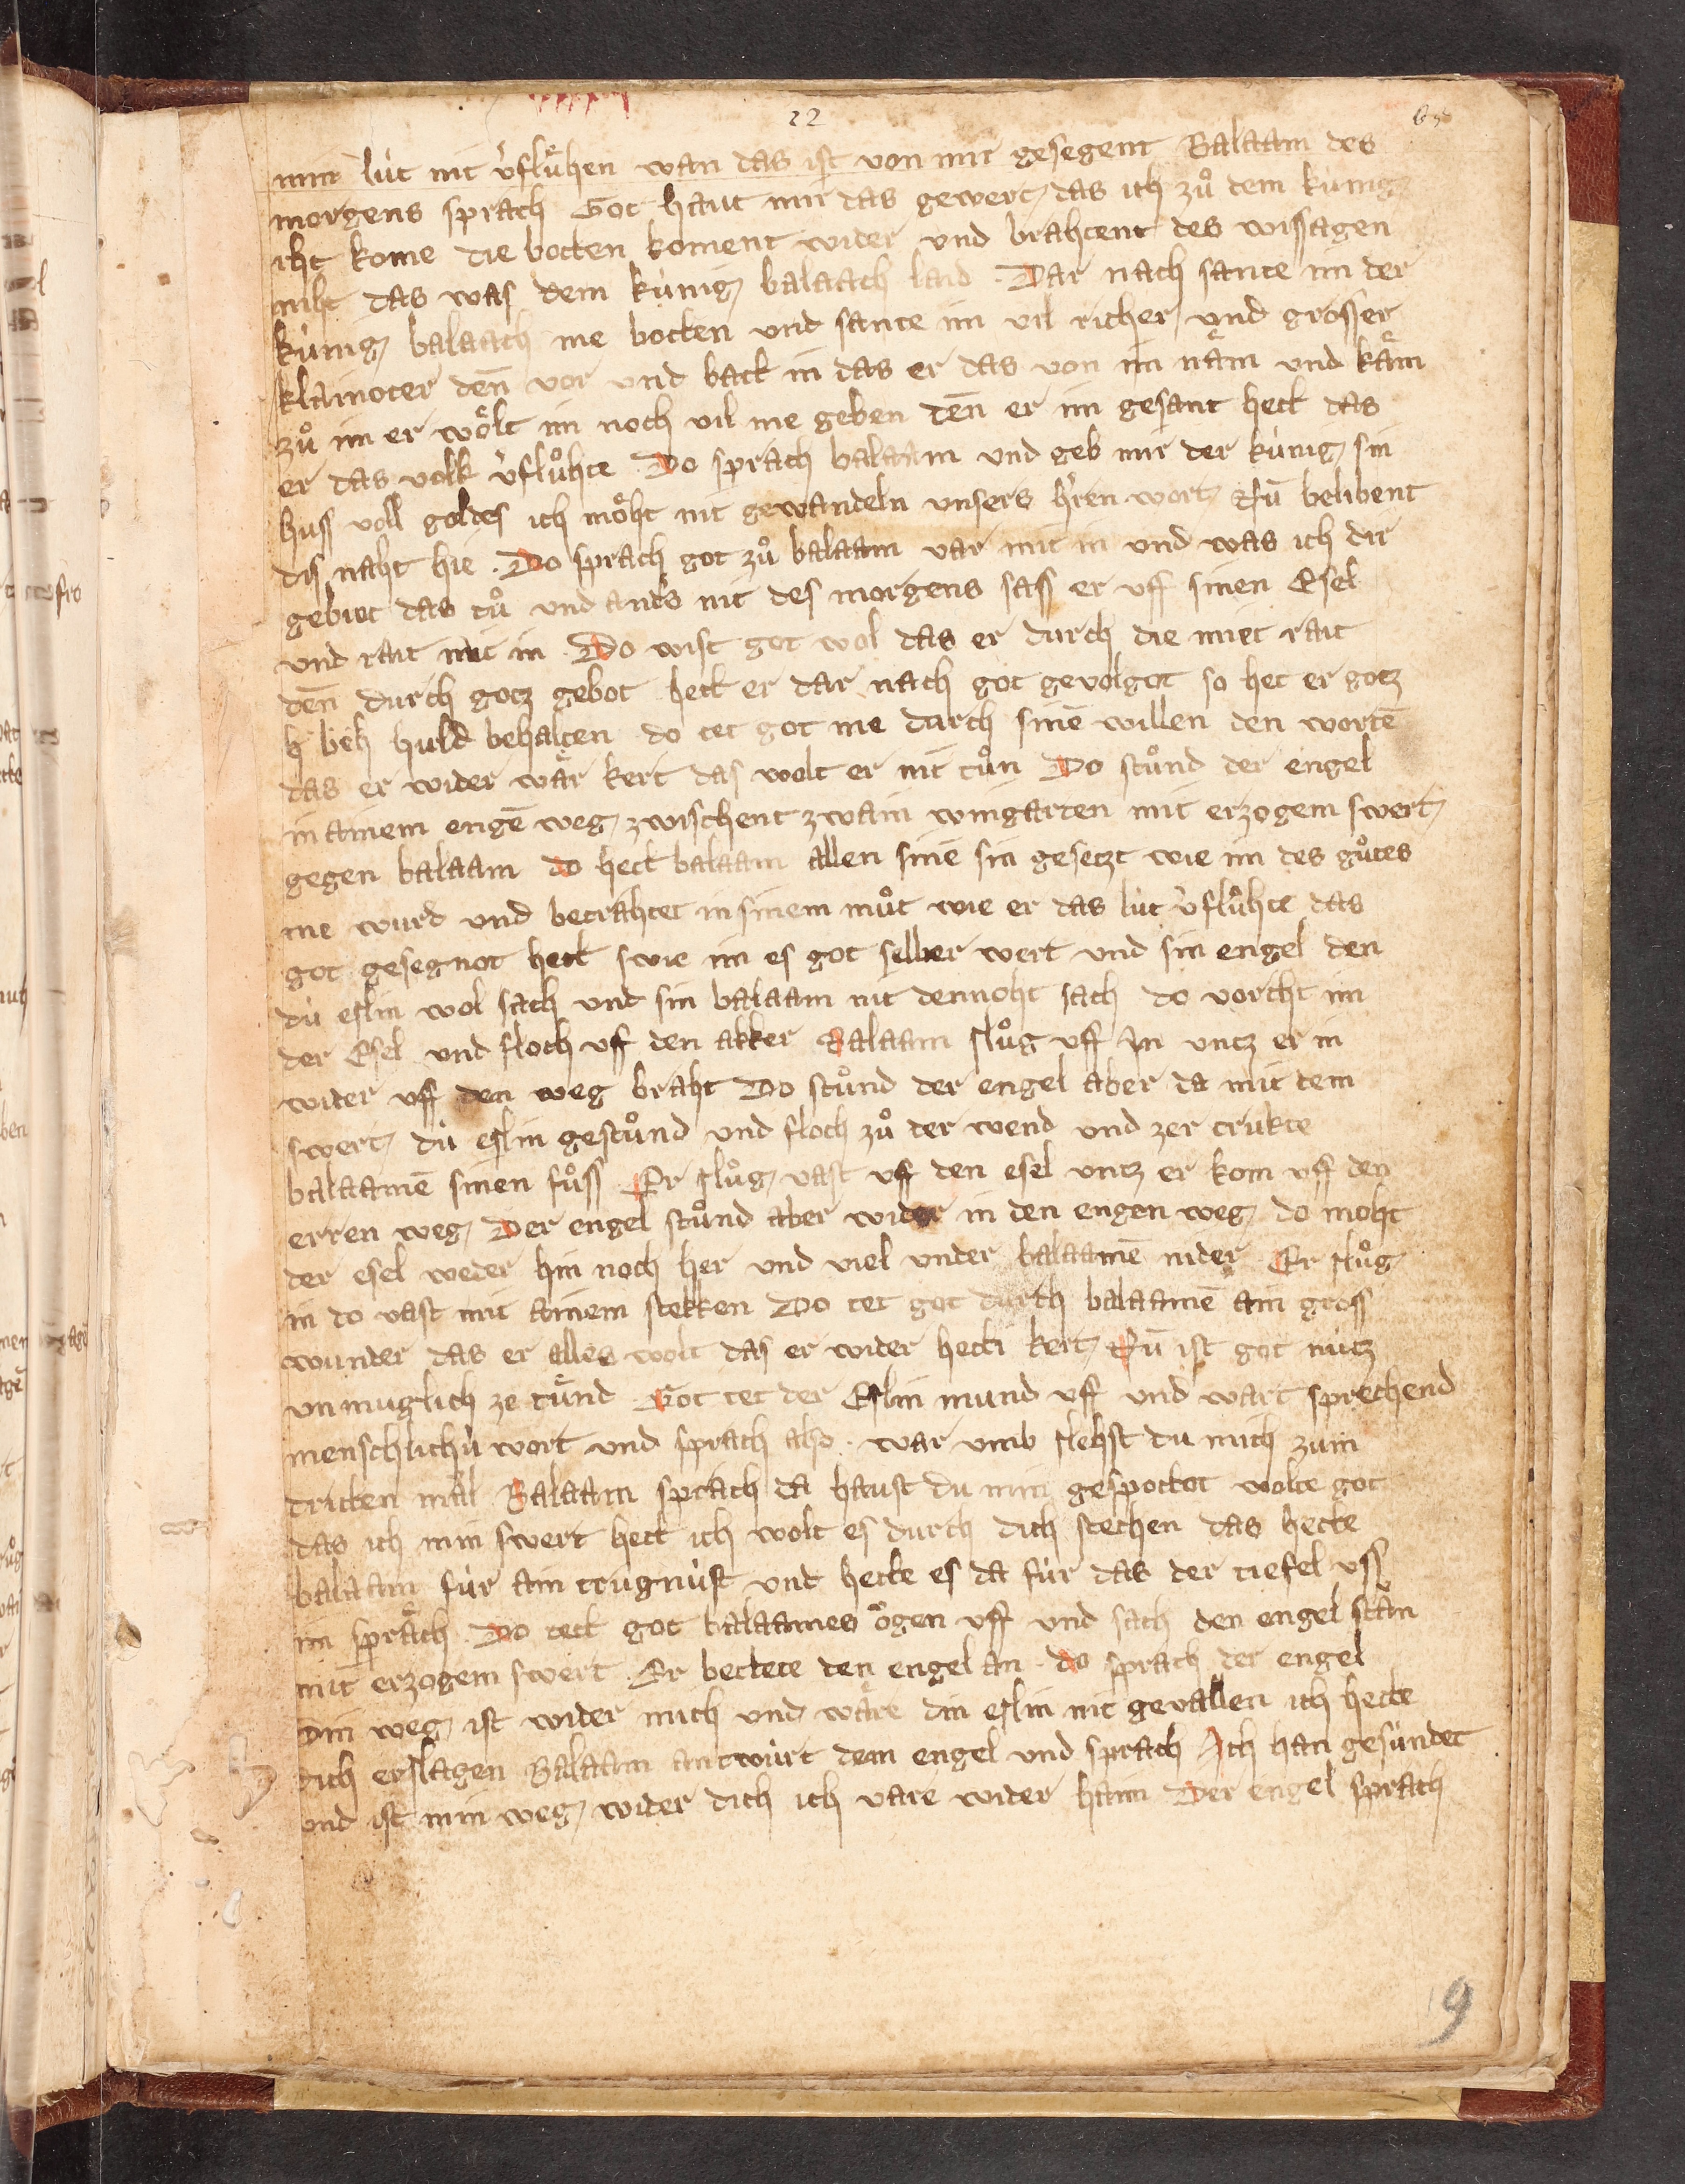 22
min lút nit v̉flůhen wan das ist von mir gesegent Balaam des
morgens sprach Got haut mir das gewert das ich zů dem kúnig
iht kome die botten koment wider und brahtent des wissagen
niht das was dem kúnig balaach laid · Dar nach sante im der
kúnig balaach me botten und sante im vil richer und grosser
klainoter deñ vor und batt in das er das von im näm und käm
zů im er wölt im noch vil me geben deñ er im gesant hett das
er das volk v̉flůhte Do sprach balaam und geb mir der kúnig sin
huss voll goldes ich möht nit gewandeln unsers h̉ren wort Nũ belibent
dis naht hie · Do sprach got zů balaam var mit in und was ich dir
gebiet das tů und anders nit des morgens sass er uff sinen Esel
und rait mit in · Do wist got wol das er durch die miet rait
deñ durch gotz gebot hett er dar nach got gevolgot so het er gotz
huld behalten do tet got me durch sinē willen den wortē
das er wider wär kert das wolt er nit tůn Do stůnd der engel
in ainem engē weg zwischent zwain wingarten mit erzogem swert
gegen balaam do hett balaam allen sinē sin gesetzt wie im des gůtes
me wurd und betrahtet in sinem můt wie er das lút v̉flůhte das
got gesegnot hett swie im es got selber wert und sin engel den
dú eslin wol sach und sin balaam nit dennoht sach do vorcht im
der Esel und floch uff den akker Balaam slůg uff In untz er in
wider uff den weg braht Do stůnd der engel aber da mit dem
swert dú eslin gestůnd und floch zů der wend und zer trukte
balaamē sinen fůss Er slůg vast uff den esel untz er kom uff den
erren weg Der engel stůnd aber wider in den engen weg do moht
der esel weder hin noch her und viel under balaamē nider Er slůg
in do vast mit ainem stekken Do tet got durch balaamē ain gross
wunder das er alles wolt das er wider hetti kert Nũ ist got nútz
unmuglich ze tůnd Got tet der Eslin mund uff und wart sprechend
menschlichú wort und sprach also · war umb slehst du mich zum
dritten mal Balaam sprach da haust du min gespottot wolte got
das ich min swert hett ich wolt es durch dich stechen das hette
balaam fúr ain trugnúst und hette es da fúr das der tiefel uss
im spräch · Do tett got balaames ögen uff und sach den engel stan
mit erzogem swert · Er bettete den engel an · do sprach der engel
Din weg ist wider mich und wäre din eslin nit gevallen ich hette
dich erslagen Balaam antwúrt dem engel und sprach Ich han gesúndet
und ist min weg wider dich ich vare wider haim Der engel sprach
9